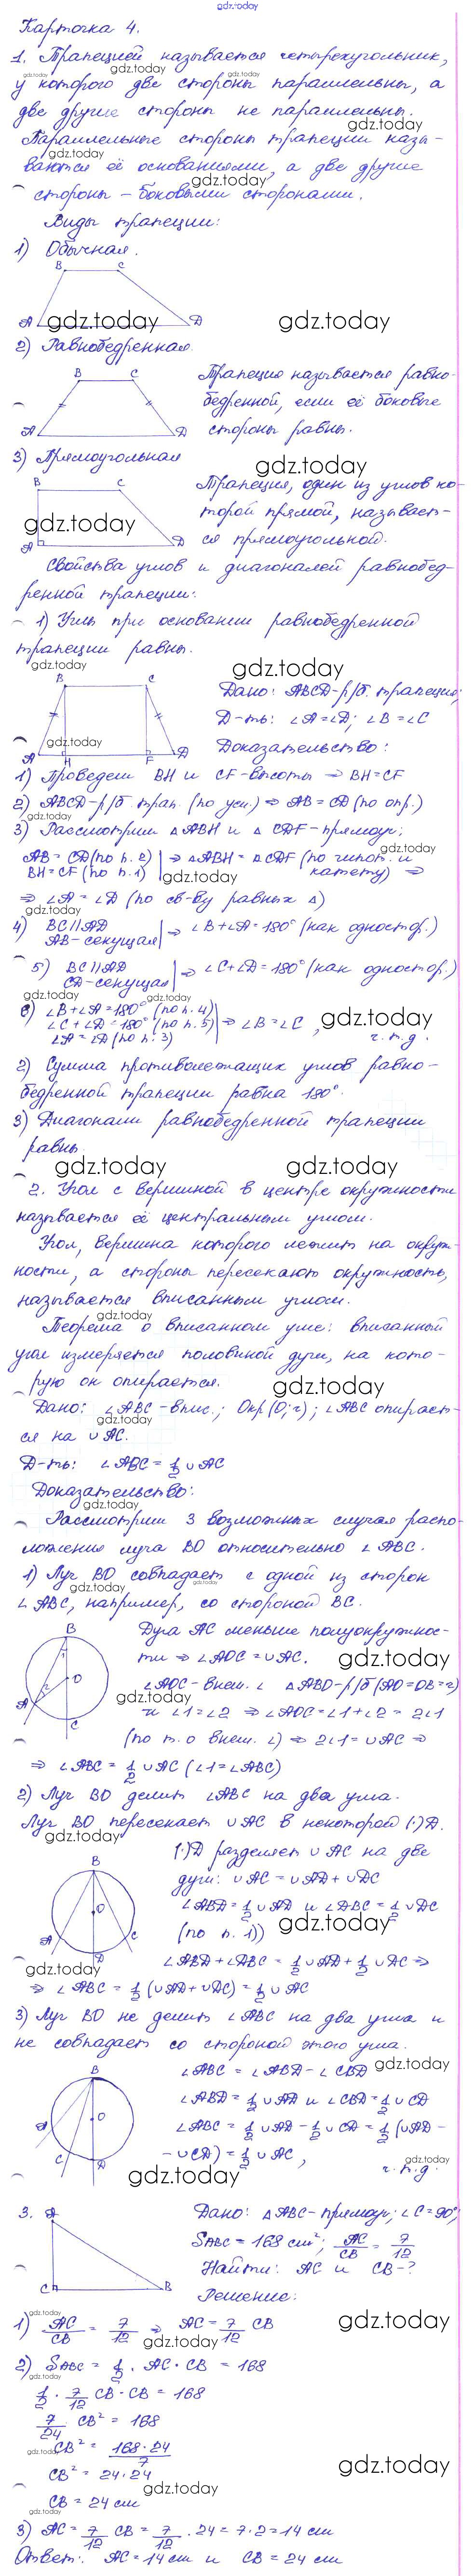 gdz.today
Карточка 4.
1. Трапецией называется четырехугольник,
у которого две стороны параллельны, а
две другие стороны не параллельны.
Параллельные стороны трапеции назы-
ваются её основаниями, а две другие
стороны – боковыми сторонами.
Виды трапеции:
1) Обычная.
B C
A D
2) Равнобедренная.
B C
A D
Трапеция называется равно-
бедренной, если её боковые
стороны равны.
3) Прямоугольная
B C
A D
Трапеция, один из углов ко-
торой прямой, называет-
ся прямоугольной.
Свойства углов и диагоналей равнобед-
ренной трапеции:
1) Углы при основании равнобедренной
трапеции равны.
B C
A H F D
Дано: ABCD-р/б. трапеция;
Д-ть: ∠A=∠D; ∠B=∠C
Доказательство:
1) Проведем BH и CF-высоты ⇒ BH=CF
2) ABCD-р/б. трап. (по усл.) ⇒ AB=CD (по опр.)
3) Рассмотрим △ABH и △CDF-прямоуг;
AB=CD (по п. 2) | ⇒ △ABH=△CDF (по гипот. и
BH=CF (по п. 1) | катету) ⇒
⇒ ∠A=∠D (по св-ву равных △)
4) BC∥AD
AB-секущая | ⇒ ∠B+∠A=180° (как одностор.)
5) BC∥AD
CD-секущая | ⇒ ∠C+∠D=180° (как одностор.)
6) ∠B+∠A=180° (по п. 4)
∠C+∠D=180° (по п. 5) | ⇒ ∠B=∠C,
∠A=∠D (по п. 3) ч.т.д.
2) Сумма противолежащих углов равно-
бедренной трапеции равна 180°.
3) Диагонали равнобедренной трапеции
равны
2. Угол с вершиной в центре окружности
называется её центральным углом.
Угол, вершина которого лежит на окруж-
ности, а стороны пересекают окружность,
называется вписанным углом.
Теорема о вписанном угле: вписанный
угол измеряется половиной дуги, на кото-
рую он опирается.
Дано: ∠ABC-впис.; Окр(O;r); ∠ABC опирает-
ся на ∪AC.
Д-ть: ∠ABC=1/2 ∪AC
Доказательство:
Рассмотрим 3 возможных случая распо-
ложения луча BO относительно ∠ABC.
1) Луч BO совпадает с одной из сторон
∠ABC, например, со стороной BC.
B
1
O
A 2
C
Дуга AC меньше полуокружнос-
ти ⇒ ∠AOC=∪AC.
∠AOC-внеш. ∠ △ABO-р/б (AO=OB=r)
и ∠1=∠2 ⇒ ∠AOC=∠1+∠2=2∠1
(по т. о внеш. ∠) ⇒ 2∠1=∪AC ⇒
⇒ ∠ABC=1/2 ∪AC (∠1=∠ABC)
2) Луч BO делит ∠ABC на два угла.
Луч BO пересекает ∪AC в некоторой (·)D.
B
O
A C
D
(·)D разделяет ∪AC на две
дуги: ∪AC=∪AD+∪DC
∠ABD=1/2 ∪AD и ∠DBC=1/2 ∪DC
(по п. 1))
∠ABD+∠DBC=1/2 ∪AD+1/2 ∪DC ⇒
⇒ ∠ABC=1/2 (∪AD+∪DC)=1/2 ∪AC
3) Луч BO не делит ∠ABC на два угла и
не совпадает со стороной этого угла.
B
O
A
C D
∠ABC=∠ABD-∠CBD
∠ABD=1/2 ∪AD и ∠CBD=1/2 ∪CD
∠ABC=1/2 ∪AD-1/2 ∪CD=1/2 (∪AD-
-∪CD)=1/2 ∪AC,
ч.т.д.
3. A
C B
Дано: △ABC-прямоуг; ∠C=90°;
SABC=168 см²; AC/CB=7/12
Найти: AC и CB-?
Решение:
1) AC/CB=7/12 ⇒ AC=7/12 CB
2) SABC=1/2 · AC · CB=168
1/2 · 7/12 CB · CB=168
7/24 CB²=168
CB²=168·24/7
CB²=24·24
CB=24 см
3) AC=7/12 CB=7/12 · 24=7·2=14 см
Ответ: AC=14 см и CB=24 см